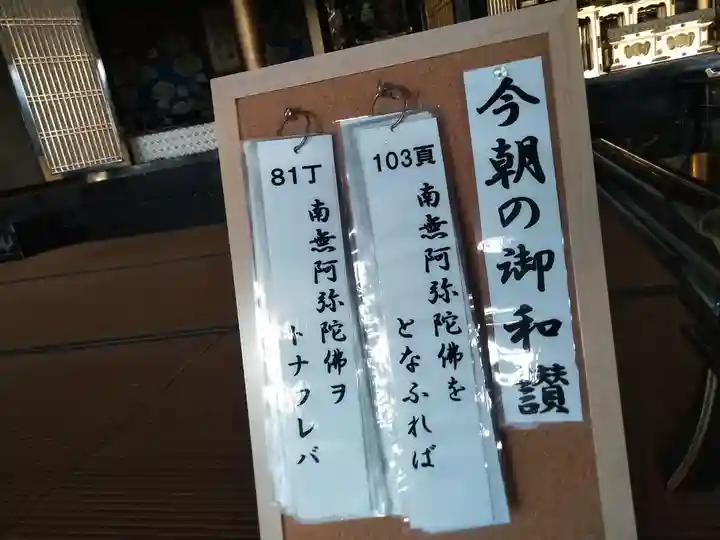 今朝の御和讃
103頁
南無阿弥陀佛を
となふれば
81丁
南無阿弥陀佛ヲ
トナフレバ